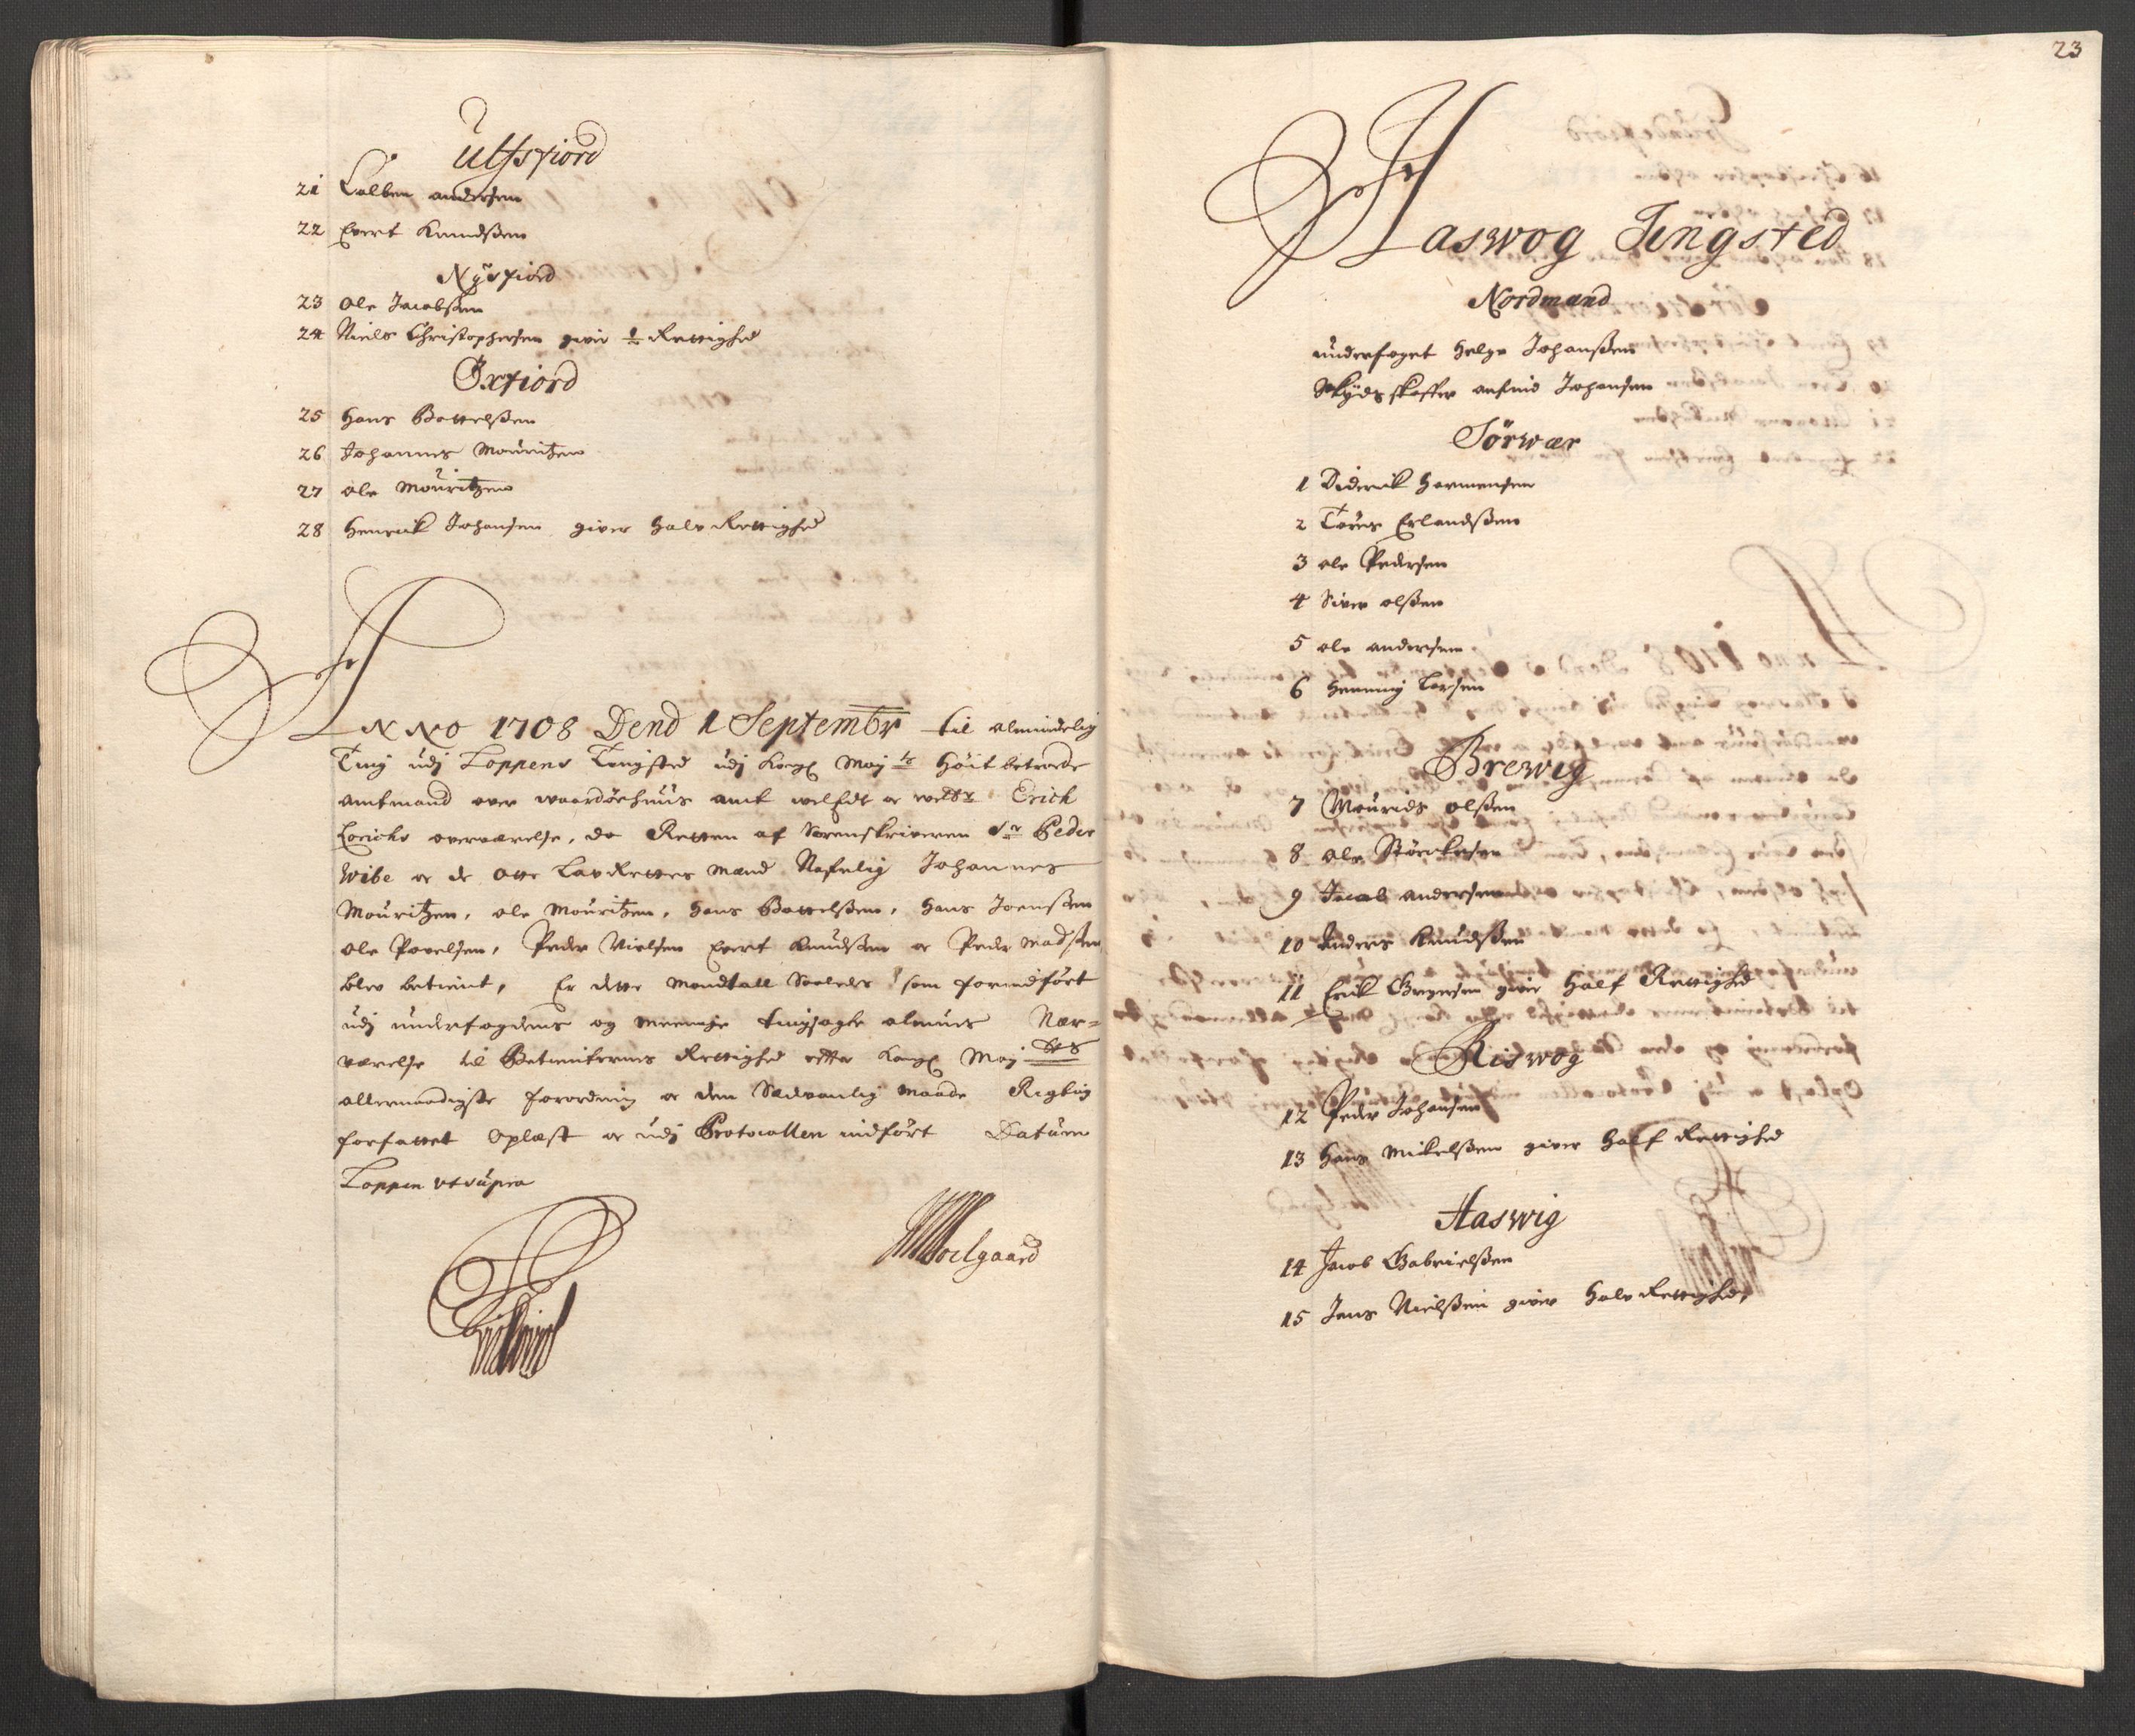 Ulfsfiord
21 Colben andersen
22 Evert Knudssen
Nysfiord
23 Ole Jacobssen
24 Niels Christophersen giver ½ Rettighed
Öxfiord
25 Hans Bottelssen
26 Johannes Mouritzen
27 ole Mouritzen
28 Henrick Johansen giver halv Rettighed
ANNO 1708 Dend 1 Septembr til almindelig
Ting udj Loppens Tingsted udj Kongl May ts Höit betroede
amtmand over waardöehuus amt welEdl og weltbr Erich
Lorichs overværelse, da Retten af Sorenskriveren Sr Peder
Wibe og de otte LavRettes mænd Nafnlig Johannes
Mouritzen, ole Mouritzen, Hans Bottelssen, Hans Joenssen
ole Povelsen, Peder Nielsen Evert Knudssen og Peder Madssen
blev betient, Er dette Mandtall Saaledes som forindfört
udj underfogdens og meenige tingsögte almues Nær=
værelse til Betienternes Rettighed efter Kongl May sts
allernaadigste forordning og den Sædvanlig maade Rigtig
forfattet Oplæst og udj Protocollen indfört Datum
Loppen ut supra
23
Haswog Tingsted
Nordmænd
underfoget Helge Johanssen
Skydsskaffer arfind Johansen
Sörwær
1 Diderick Harmensen
2 Töres Erlandssen
3 ole Pedersen
4 Siver olssen
5 ole andersen
6 Henning Larsen
Brewig
7 Mourids olssen
8 ole Störckersen
9 Jacob andersen
10 Anders Knudssen
11 Erik Gregersen giver Half Rettighed
Riswog
12 Peder Johansen
13 Hans Mickelssen giver Half Rettighed
Haswig
14 Jacob Gabrielssen
15 Jens Nielssen giver halv Rettighed,